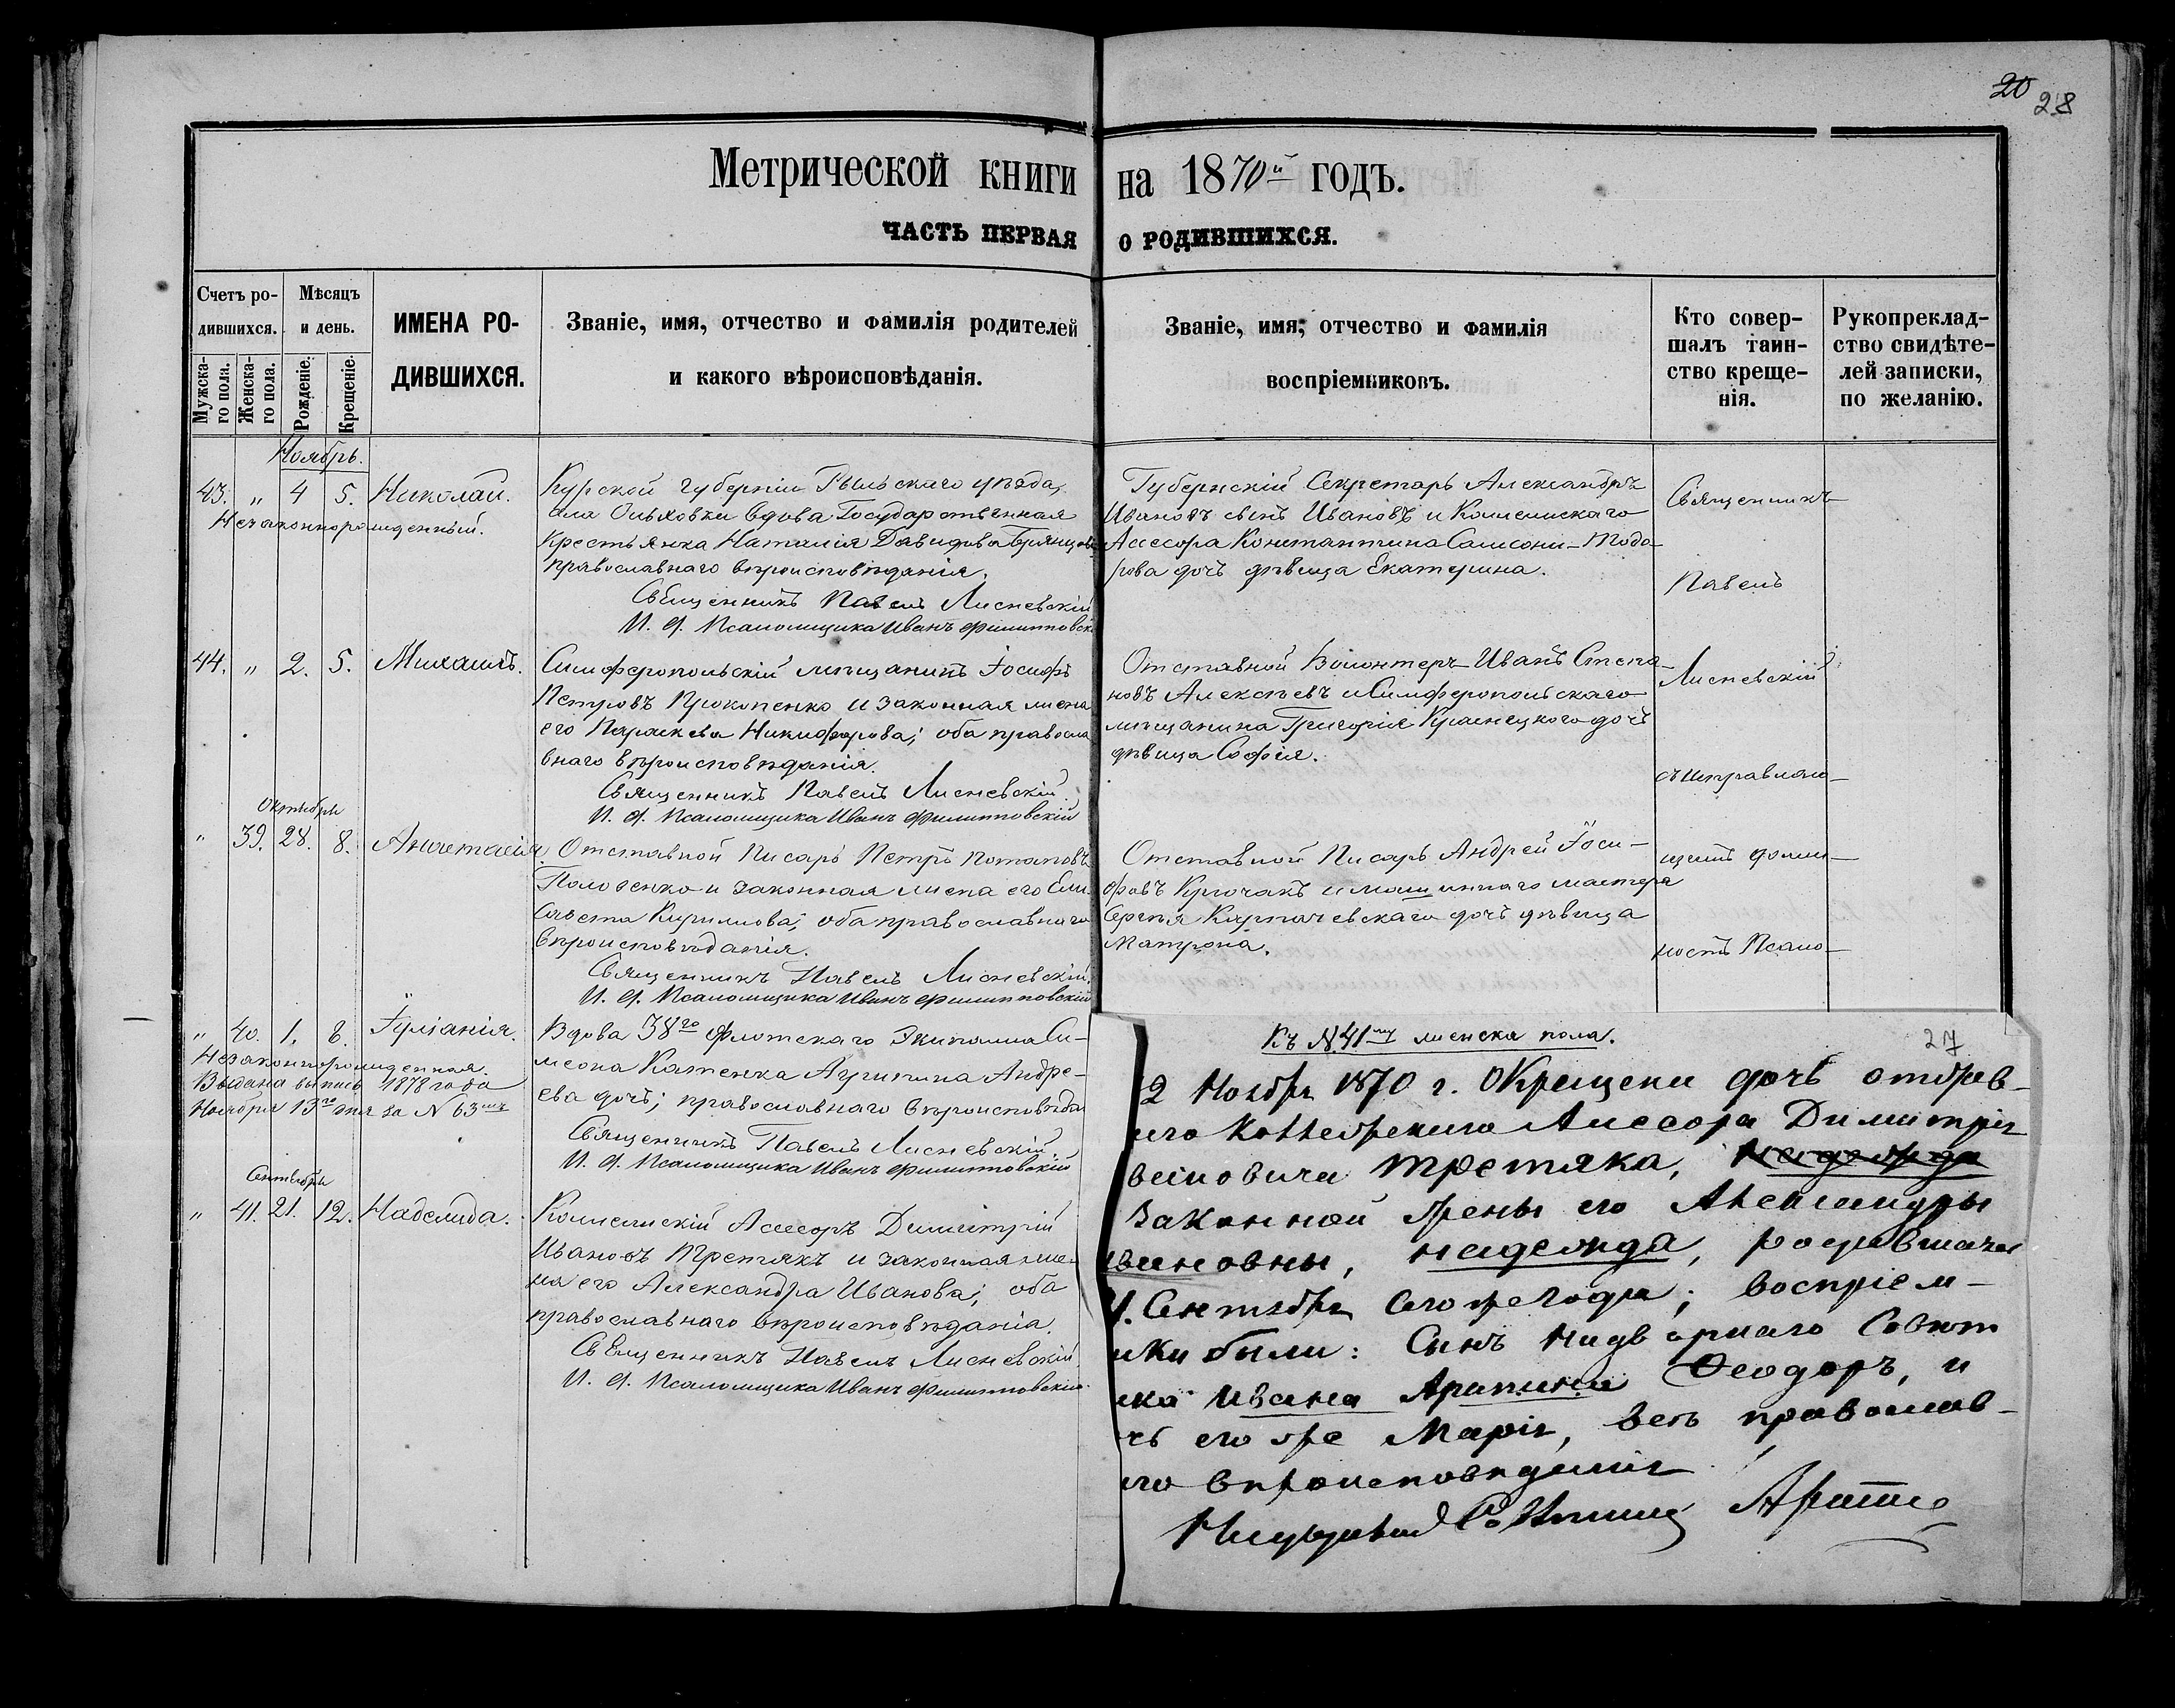 20
28
Метрической книги на 1870й годъ.
ЧАСТЬ ПЕРВАЯ О РОДИВШИХСЯ.
Счетъ родившихся.
Мужска-
го пола.
Женска-
го пола.
Мѣсяцъ
и день.
Рожденіе.
Крещеніе.
ИМЕНА РО-
ДИВШИХСЯ.
Званіе, имя, отчество и фамилія родителей
и какого вѣроисповѣданія.
Званіе, имя, отчество и фамилія
воспріемниковъ.
Кто совер-
шалъ таин-
ство креще-
нія.
Рукопреклад-
ство свидѣте-
лей записки,
по желанію.
Ноябрь.
43. „ 4 5. Николай.
Незаконнорожденный.
Курской губерніи Рыльскаго уѣзда,
села Ольховки вдова Государственная
Крестьянка Наталія Давидова
православнаго вѣроисповѣданія.
Священникъ Павелъ Лисневскій
И. д. Псаломщика Иванъ Филипповскій
Губернскій Секретарь Александръ
Ивановъ сынъ Ивановъ и Коллежскаго
Ассесора Константина Самсони-Тодо-
рова дочь дѣвица Екатерина.
Священникъ
Павелъ
44. „ 2. 5. Михаилъ.
Симферопольскій мѣщанинъ Іосифъ
Петровъ Прокопенко и законная жена
его Параскева Никифорова; оба правосла
внаго вѣроисповѣданія.
Священникъ Павелъ Лисневскій
И. д. Псаломщика Иванъ Филипповскій
Отставной Волонтеръ Иванъ Степа-
новъ Алексѣевъ и Симферопольскаго
мѣщанина Григорія дочь
дѣвица Софія.
Лисневскій
съ исправляю-
Октября
„ 39. 28. 8. Анастасія.
Отставной Писарь Петръ Потаповъ
и законная жена его Ели
савета Кирилова; оба православнаго
вѣроисповѣданія.
Священникъ Павелъ Лисневскій.
И. д. Псаломщика Иванъ Филипповскій
Отставной Писарь Андрей Іоси-
фовъ Крючакъ и машиннаго мастера
Сергѣя Карпачевскаго дочь дѣвица
Матрона.
щимъ долж-
ность Псало-
„ 40. 1. 8. Іуліанія.
Незаконнорожденная.
Выдана выпись 1878 года
Ноября 13го дня за N 63мъ
Вдова 38го Флотскаго Экипажа Си-
меона Катенка Агрипина Андре-
ева дочь; православнаго вѣроисповѣда
Священникъ Павелъ Лисневскій
И. д. Псаломщика Иванъ Филипповскій
Сентября
„ 41. 21. 12. Надежда.
Коллежскій Ассесоръ Димитрій
Ивановъ Третякъ и законная же-
на его Александра Иванова; оба
православнаго вѣроисповѣданія.
Священникъ Павелъ Лисневскій
И. д. Псаломщика Иванъ Филипповскій
27
Къ N. 41му женска пола.
2 Ноября 1870 г. Окрещена дочь отстав-
его Коллежскаго Ассесора Димитрія
вановича Третяка, Надежда
Законной жены его Александры
вановны, Надежда, родившаяся
1. Сентября сего же года; воспріем-
ики были: Сынъ Надворнаго Совѣт
ика Ивана Арапина Ѳеодоръ, и
чь его же Марія, всѣ православ-
го вѣроисповѣданія